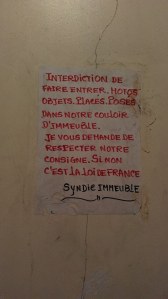 INTERDICTION DE
FAIRE ENTRER. MOTOS
OBJETS. PLACÉS. POSÉS
DANS NOTRE COULOIR
D'IMMEUBLE.
JE VOUS DEMANDE DE
RESPECTER NOTRE
CONSIGNE. SI NON
C'EST LA LOI DE FRANCE
SYNDIC IMMEUBLE